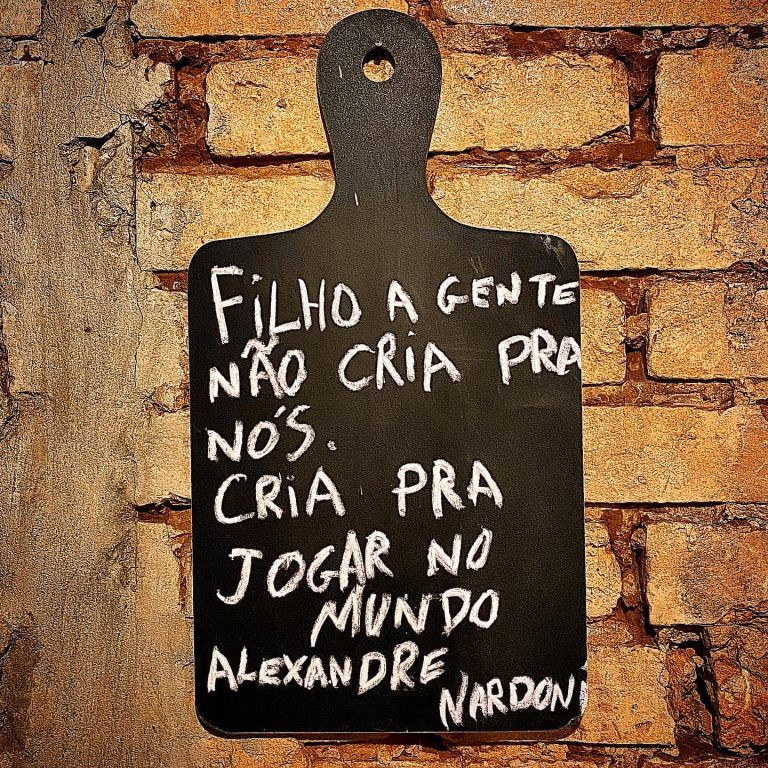 FILHO A GENTE
NÃO CRIA PRA
NÓS.
CRIA PRA
JOGAR NO
MUNDO
ALEXANDRE
NARDONI